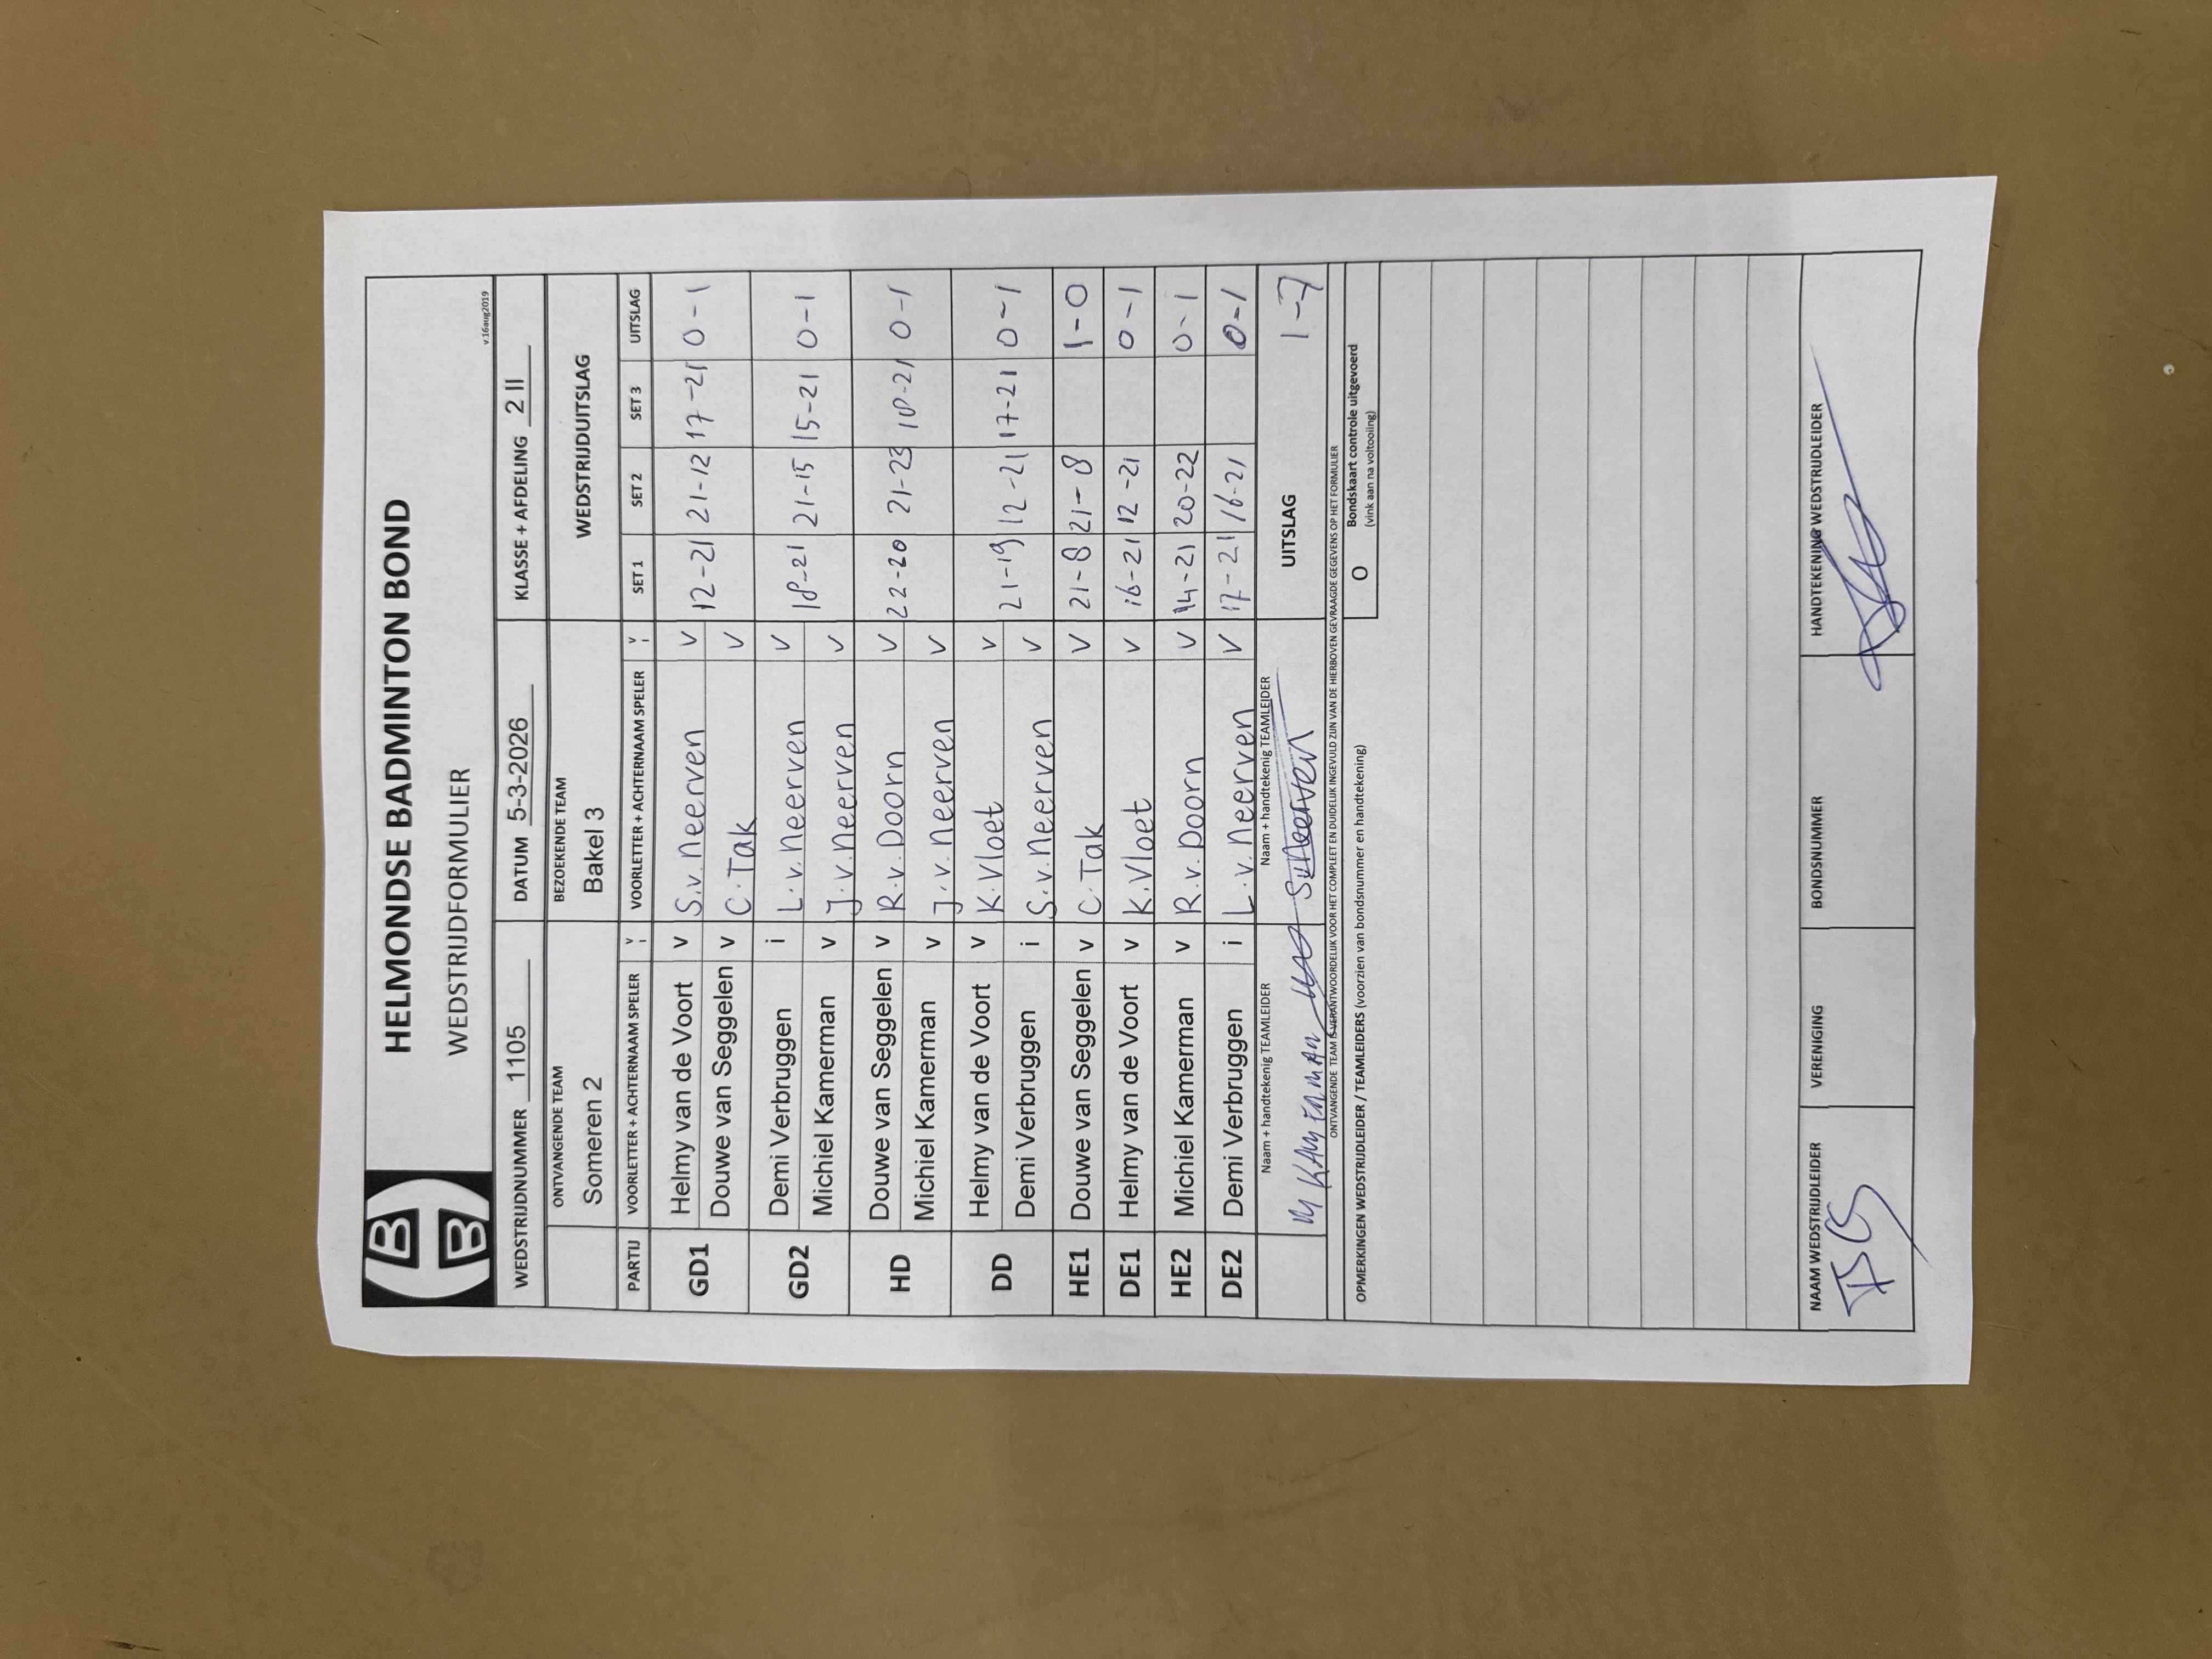 HELMONDSE BADMINTON BOND
WEDSTRIJDFORMULIER
v.16aug2019
WEDSTRIJDNUMMER 1105 DATUM 5-3-2026 KLASSE + AFDELING 2 II
ONTVANGENDE TEAM BEZOEKENDE TEAM WEDSTRIJDUITSLAG
Someren 2 Bakel 3
PARTIJ VOORLETTER + ACHTERNAAM SPELER V i VOORLETTER + ACHTERNAAM SPELER V i SET 1 SET 2 SET 3 UITSLAG
GD1 Helmy van de Voort v S.v. Neerven v 12-21 21-12 17-21 0-1
Douwe van Seggelen v C. Tak v
GD2 Demi Verbruggen i L.v. Neerven v 18-21 21-15 15-21 0-1
Michiel Kamerman v J.v. Neerven v
HD Douwe van Seggelen v R.v. Doorn v 22-20 21-23 18-21 0-1
Michiel Kamerman v J.v. Neerven v
DD Helmy van de Voort v K. Vloet v 21-19 12-21 17-21 0-1
Demi Verbruggen i S.v. Neerven v
HE1 Douwe van Seggelen v C Tak v 21-8 21-8 1-0
DE1 Helmy van de Voort v K. Vloet v 16-21 12-21 0-1
HE2 Michiel Kamerman v R.v. Doorn v 14-21 20-22 0-1
DE2 Demi Verbruggen i L.v. Neerven v 17-21 16-21 0-1
Naam + handtekenig TEAMLEIDER Naam + handtekenig TEAMLEIDER
M KAMERMAN S.v.Neerven UITSLAG 1-7
ONTVANGENDE TEAM IS VERANTWOORDELIJK VOOR HET COMPLEET EN DUIDELIJK INGEVULD ZIJN VAN DE HIERBOVEN GEVRAAGDE GEGEVENS OP HET FORMULIER
OPMERKINGEN WEDSTRIJDLEIDER / TEAMLEIDERS (voorzien van bondsnummer en handtekening) O Bondskaart controle uitgevoerd
(vink aan na voltooiing)
NAAM WEDSTRIJDLEIDER VERENIGING BONDSNUMMER HANDTEKENING WEDSTRIJDLEIDER